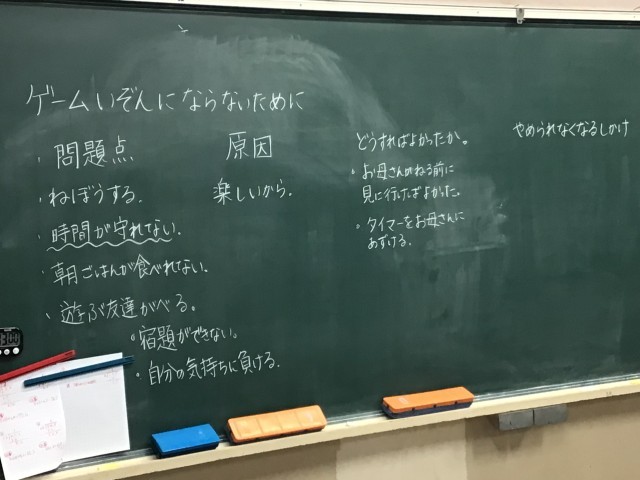 ゲームいぞんにならないために
・問題点
・ねぼうする。
・時間が守れない。
・朝ごはんが食べれない。
・遊ぶ友達がへる。
・宿題ができない。
・自分の気持ちに負ける。
原因
楽しいから。
どうすればよかったか。
・お母さんがねる前に
見に行けばよかった。
・タイマーをお母さんに
あずける。
やめられなくなるしかけ